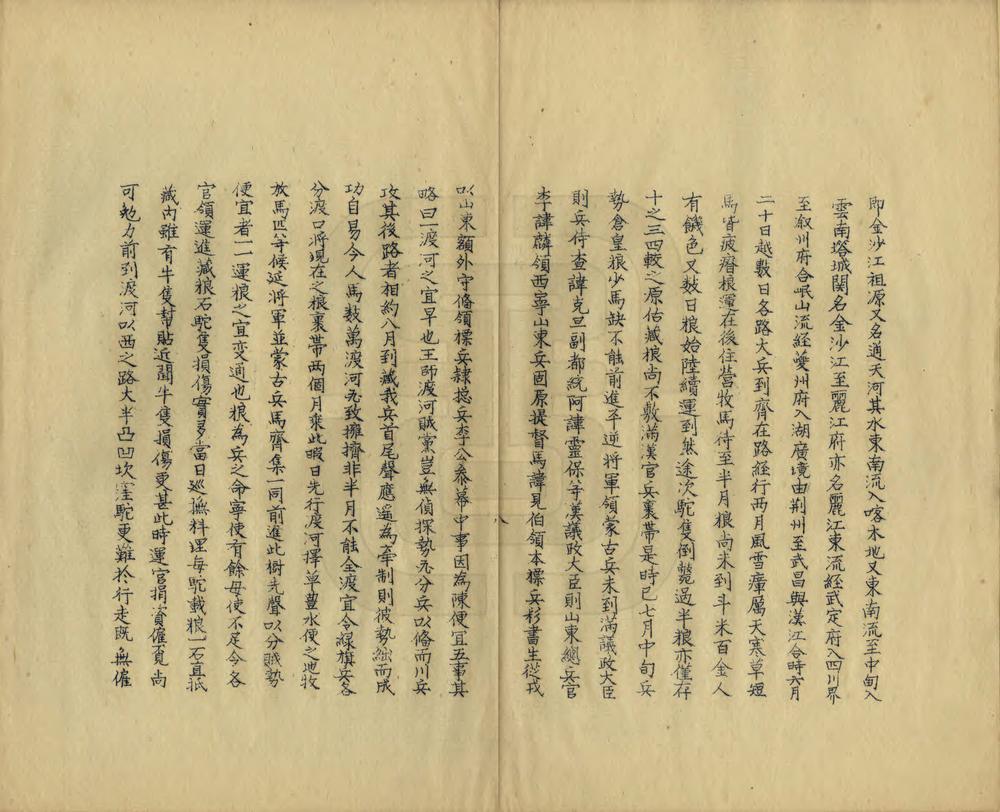 即金沙江祖源又名通天河其水東南流入喀木地又東南流至中甸入
雲南塔城関名金沙江至麗江府亦名麗江東流經武定府入四川界
至溆州府合岷山流經夔州府入湖廣境由荆州至武昌與漢江合時六月
二十日越數日各路大兵到齊在路經行两月風雪瘴厲天寒草短
馬皆疲瘠粮運在後住營牧馬待至半月粮尚未到斗米百金人
有饑色又数日粮始陸續運到然途次駝隻倒斃過半粮亦僅存
十之三四較之原估藏粮尚不敷滿漢官兵裹帶是時已七月中旬兵
勢倉皇粮少馬缺不能前進平逆將軍領蒙古兵未到滿議政大臣
則兵侍查諱克旦副都統阿諱靈保等漢議政大臣則山東總兵官
李諱麟領西寧山東兵固原提督馬諱見伯領本標兵杉書生從戎
以山東額外守俻領標兵隷捴兵李公叅幕中事因為陳便宜五事其
略曰一渡河之宜早也王師渡河賊黨豈無偵探勢必分兵以俻而川兵
攻其後路者相約八月到藏我兵首尾聲應遥為牽制則彼勢絀而成
功自易今人馬数萬渡河必致擁擠非半月不能全渡宜令緑旗兵各
分渡口將現在之粮裹帶两個月乘此暇日先行度河擇草豊水便之地牧
放馬匹等候延將軍並蒙古兵馬齊集一同前進此樹先聲以分賊勢
便宜者一一運粮之宜变通也粮為兵之命寧使有餘毋使不足今各
官領運進藏粮石駝隻損傷實多當日巡撫料理每駝載粮一石直抵
藏内雖有牛隻幇貼近聞牛隻損傷更甚此時運官捐資僱覓尚
可勉力前到渡河以西之路大半凸凹坎窪駝更難於行走既無僱